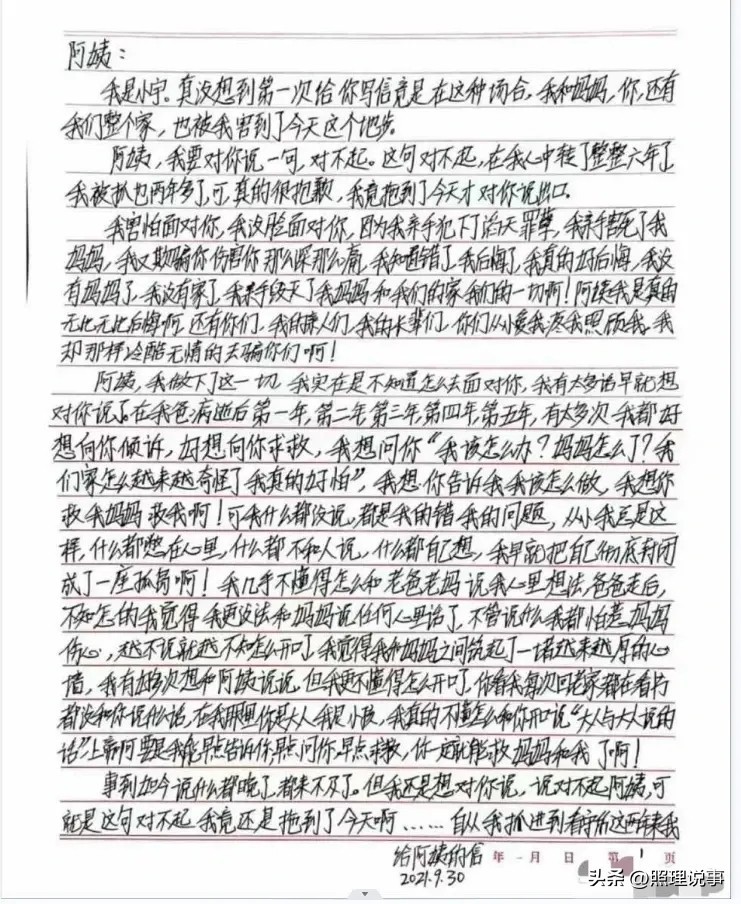 阿姨：
我是小宇。真没想到第一次给你写信竟是在这种场合，我和妈妈，你，还有
我们整个家，也被我害到了今天这个地步。
阿姨，我要对你说一句，对不起。这句对不起，在我心中转了整整六年了
我被抓也两年多了，可，真的很抱歉，我竟拖到了今天才对你说出口。
我害怕面对你，我没脸面对你，因为我亲手犯下了滔天罪孽，我亲手害死了我
妈妈，我又欺骗你伤害你那么深那么痛，我知道错了，我后悔了，我真的好后悔，我没
有妈妈了，我没有家了，我亲手毁灭了我妈妈和我们的家我们的一切啊！阿姨我是真的
无比无比后悔啊，还有你们，我的亲人们，我的长辈们，你们从小爱我疼我照顾我。我
却那样冷酷无情的去骗你们啊！
阿姨，我做下了这一切，我实在是不知道怎么去面对你，我有太多话早就想
对你说了。在我爸病逝后第一年，第二年，第三年，第四年，第五年，有太多次我都好
想向你倾诉，好想向你求救，我想问你“我该怎么办？妈妈怎么了？我
们家怎么越来越奇怪了我真的好怕”，我想你告诉我我该怎么做，我想你
救我妈妈救我啊！可我什么都没说，都是我的错我的问题，从小我总是这
样，什么都憋在心里，什么都不和人说，什么都自己想，我早就把自己彻底封闭
成了一座孤岛啊！我几乎不懂得怎么和老爸老妈说我心里想法，爸爸走后，
不知怎的我觉得我更没法和妈妈说任何心里话了，不管说什么我都怕惹妈妈
伤心，越不说就越不知怎么开口了，我觉得我和妈妈之间筑起了一堵越来越厚的心
墙，我有好多次想和阿姨说说，但我更不懂得怎么开口了，你看我每次回老家都在看书
都没和你说什么话，在我眼里你是大人我是小孩，我真的不懂怎么和你开口说“大人与大人说的
话”上帝啊要是我能早点告诉你，早点问你，早点求救，你一定就能救妈妈和我了啊！
事到如今说什么都晚了，都来不及了。但我还是想对你说，说对不起阿姨，可
就是这句对不起，我竟还是拖到了今天啊……自从我抓进到看守所这两年来我
给阿姨的信 年 月 日 第 1 页
2021.9.30
头条 @照理说事